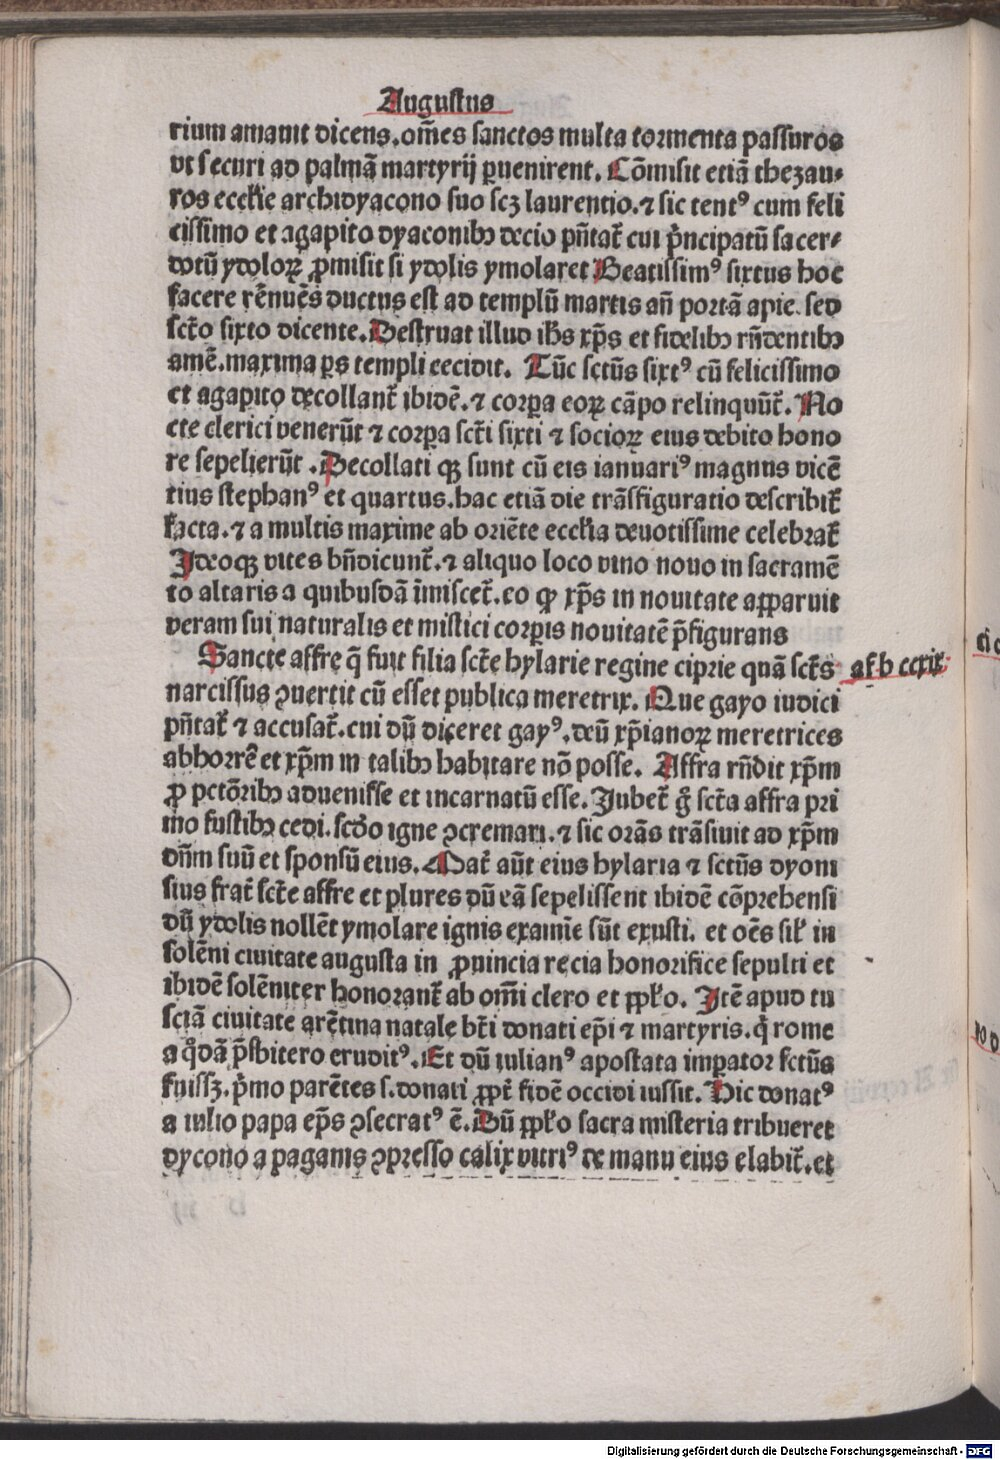 Augustus
rium amauit dicens. om̄es sanctos multa tormenta passuros
vt securi ad palmā martyrij ꝑuenirent. Cōmisit etiā thezau⸗
ros eccłie archidyacono suo scꝫ laurentio. ⁊ sic tentꝰ cum feli
cissimo et agapito dyaconibꝫ decio pn̄tat̄ cui p̄ncipatū sacer⸗
dotū ydoloꝝ ꝓmisit si ydolis ymolaret Beatissimꝰ sixtus hoc
facere rēnuēs ductus est ad templū martis an̄ portā apie. sed
sct̄o sixto dicente. Destruat illud ih̄s xp̄s et fidelibꝫ rn̄dentibꝫ
amē. maxima ꝑs templi cecidit. Tūc sct̄us sixtꝰ cū felicissimo
et agapito decollant̄ ibidē. ⁊ corꝑa eoꝝ cāpo relinquūt̄. No
cte clerici venerūt ⁊ corꝑa sct̄i sixti ⁊ socioꝝ eius debito hono
re sepelierūt. Decollati qꝫ sunt cū eis ianuariꝰ magnus vicē
tius stephanꝰ et quartus. hac etiā die trāsfiguratio describit̄
facta. ⁊ a multis maxime ab oriēte eccłia deuotissime celebrat̄
Ideoqꝫ vites bn̄dicunt̄. ⁊ aliquo loco vino nouo in sacramē
to altaris a quibusdā īmiscet̄. eo ꝙ xp̄s in nouitate apparuit
veram sui naturalis et mistici corꝑis nouitatē p̄figurans
Sancte affre q̄ fuit filia sct̄e hylarie regine ciprie quā sct̄s
af. b ccxix
narcissus ꝯuertit cū esset publica meretrix. Que gayo iudici
pn̄tat̄ ⁊ accusat̄. cui dū diceret gayꝰ. deū xp̄ianoꝝ meretrices
abhorrē et xp̄m in talibꝫ habitare nō posse. Affra rn̄dit xp̄m
ꝓ pctōribꝫ aduenisse et incarnatū esse. Jubet̄ g̊ sct̄a affra pri
mo fustibꝫ cedi. scd̄o igne ꝯcremari. ⁊ sic orās trāsiuit ad xp̄m
dn̄m suū et sponsū eius. Mat̄ aūt eius hylaria ⁊ sct̄us dyoni
sius frat̄ sct̄e affre et plures dū eā sepelissent ibidē cōprehensi
dū ydolis nollēt ymolare ignis examīe sūt exusti. et oēs sił in
solēni ciuitate augusta in ꝓuincia recia honorifice sepulti et
ibidē solēniter honorant̄ ab om̄i clero et ppło. Itē apud tu
sciā ciuitate arētina natale bt̄i donati ep̄i ⁊ martyris. q̇ rome
a q̊dā p̄sbitero eruditꝰ. Et dū iulianꝰ apostata imꝑator fctūs
fuissꝫ. p̄mo parētes s. donati ꝓpt̄ fidē occidi iussit. Hic donatꝰ
a iulio papa ep̄s ꝯsecratꝰ ē. Dū ppło sacra misteria tribueret
dycono a paganis ꝯpresso calix vitriꝰ de manu eius elabit̄. et
Digitalisierung gefördert durch die Deutsche Forschungsgemeinschaft - DFG